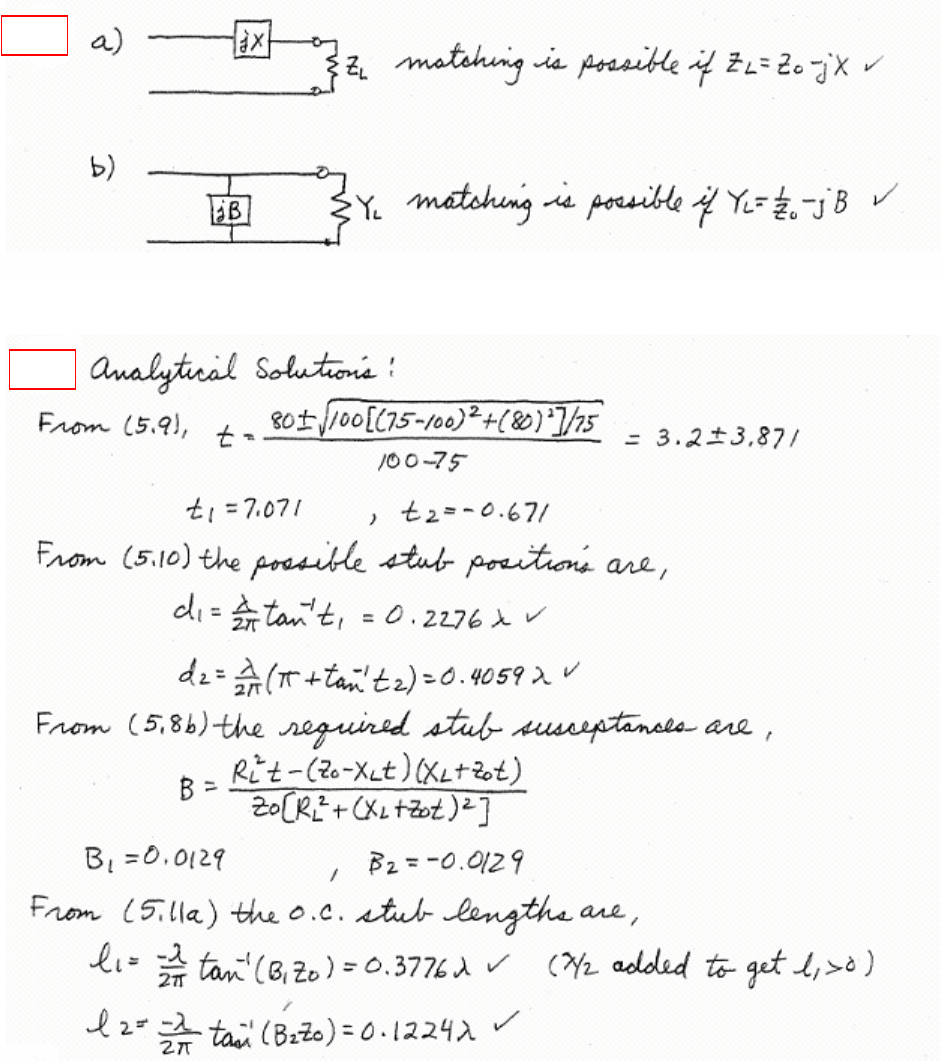 a) jX Z_L matching is possible if Z_L = Z_0 - jX ✓
b) jB Y_L matching is possible if Y_L = 1/Z_0 - jB ✓
Analytical Solutions:
From (5.9), t = (80 ± √(100[(75-100)² + (80)²]/75)) / (100-75) = 3.2 ± 3.871
t_1 = 7.071 , t_2 = -0.671
From (5.10) the possible stub positions are,
d_1 = λ/2π tan⁻¹ t_1 = 0.2276 λ ✓
d_2 = λ/2π (π + tan⁻¹ t_2) = 0.4059 λ ✓
From (5.8b) the required stub susceptances are,
B = (R_L² t - (Z_0 - X_L t)(X_L + Z_0 t)) / (Z_0 [R_L² + (X_L + Z_0 t)²])
B_1 = 0.0129 , B_2 = -0.0129
From (5.11a) the o.c. stub lengths are,
l_1 = -λ/2π tan⁻¹ (B_1 Z_0) = 0.3776 λ ✓ (λ/2 added to get l_1 > 0)
l_2 = -λ/2π tan⁻¹ (B_2 Z_0) = 0.1224 λ ✓